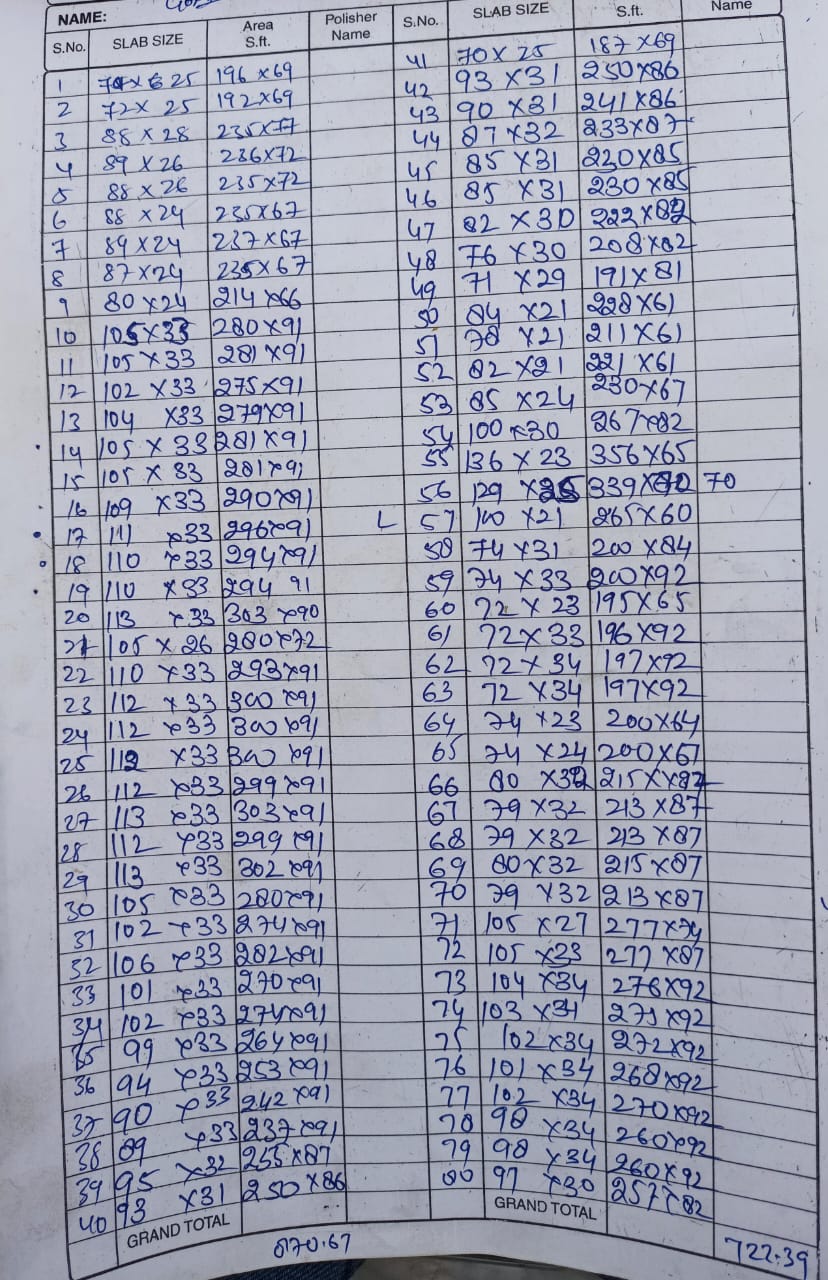 NAME:
S.No. SLAB SIZE Area S.ft. Polisher Name
1 25 196 x 69
2 72 x 25 192 x 69
3 88 x 28 235 x 77
4 89 x 26 236 x 72
5 88 x 26 235 x 72
6 88 x 24 235 x 67
7 89 x 24 237 x 67
8 87 x 24 235 x 67
9 80 x 24 214 x 66
10 105 x 33 280 x 91
11 105 x 33 281 x 91
12 102 x 33 275 x 91
13 104 x 33 279 x 91
14 105 x 33 281 x 91
15 105 x 33 281 x 91
16 109 x 33 290 x 91
17 111 x 33 296 x 91
18 110 x 33 294 x 91
19 110 x 33 294 91
20 113 x 33 303 x 90
21 105 x 26 280 x 72
22 110 x 33 293 x 91
23 112 x 33 300 x 91
24 112 x 33 300 x 91
25 112 x 33 300 x 91
26 112 x 33 299 x 91
27 113 x 33 303 x 91
28 112 x 33 299 x 91
29 113 x 33 302 x 91
30 105 x 33 280 x 91
31 102 x 33 274 x 91
32 106 x 33 282 x 91
33 101 x 33 270 x 91
34 102 x 33 274 x 91
35 99 x 33 264 x 91
36 94 x 33 253 x 91
37 90 x 33 242 x 91
38 89 x 33 237 x 91
39 95 x 32 255 x 87
40 93 x 31 250 x 86
GRAND TOTAL
870.67
S.No. SLAB SIZE S.ft. Name
41 70 x 25 187 x 69
42 93 x 31 250 x 86
43 90 x 31 241 x 86
44 87 x 32 233 x 87
45 85 x 31 230 x 85
46 85 x 31 230 x 85
47 82 x 30 222 x 82
48 76 x 30 208 x 82
49 71 x 29 191 x 81
50 84 x 21 228 x 61
51 78 x 21 211 x 61
52 82 x 21 221 x 61
53 85 x 24 230 x 67
54 100 x 30 267 x 82
55 136 x 23 356 x 65
56 129 x 25 339 x 70 70
L 57 100 x 21 265 x 60
58 74 x 31 200 x 84
59 74 x 33 200 x 92
60 72 x 23 195 x 65
61 72 x 33 196 x 92
62 72 x 34 197 x 92
63 72 x 34 197 x 92
64 74 x 23 200 x 64
65 74 x 24 200 x 67
66 80 x 32 215 x x 87
67 79 x 32 213 x 87
68 79 x 32 213 x 87
69 80 x 32 215 x 87
70 79 x 32 213 x 87
71 105 x 27 277 x 74
72 105 x 33 277 x 87
73 104 x 34 276 x 92
74 103 x 34 271 x 92
75 102 x 34 272 x 92
76 101 x 34 268 x 92
77 102 x 34 270 x 92
78 98 x 34 260 x 92
79 98 x 34 260 x 92
80 97 x 30 257 x 82
GRAND TOTAL
722.39